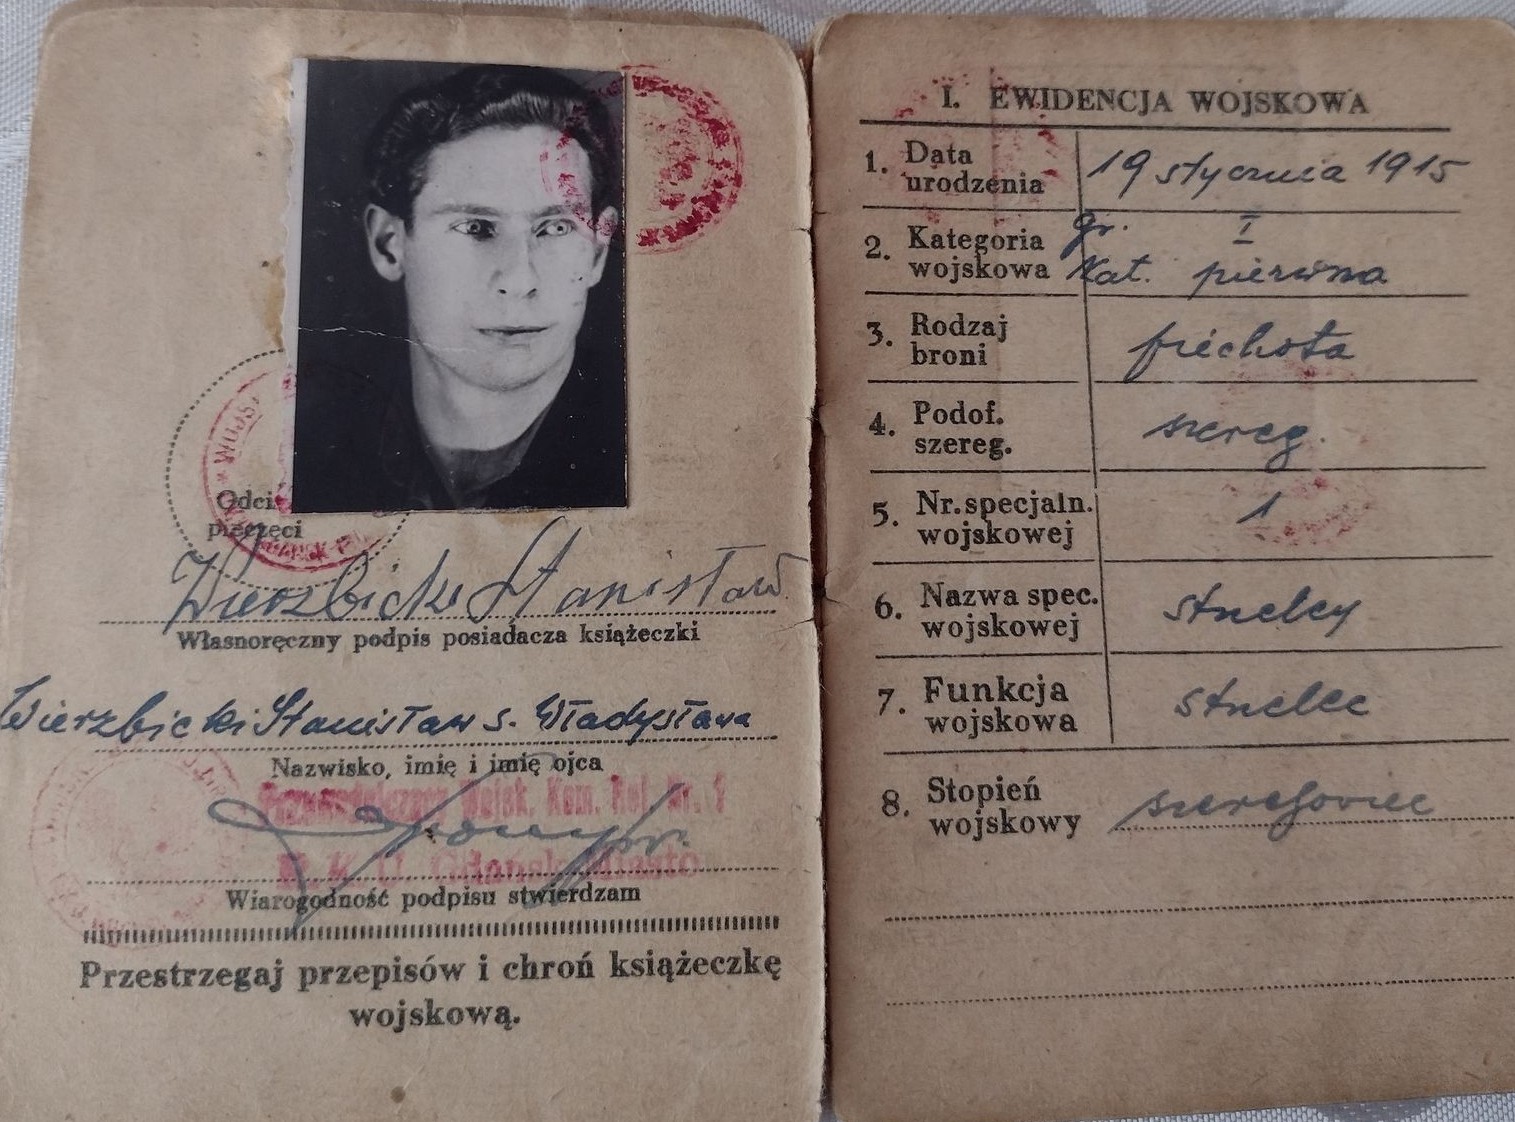 WOJSK
Odci
pieczęci
Wierzbicki Stanisław
Własnoręczny podpis posiadacza książeczki
Wierzbicki Stanisław s. Władysława
Nazwisko, imię i imię ojca
Wojsk. Kom. Rej. Nr. 1
Wiarogodność podpisu stwierdzam
Przestrzegaj przepisów i chroń książeczkę
wojskową.
I. EWIDENCJA WOJSKOWA
1. Data
urodzenia
19 stycznia 1915
2. Kategoria
wojskowa
gr. I
Kat. pierwsza
3. Rodzaj
broni
piechota
4. Podof.
szereg.
szereg.
5. Nr. specjaln.
wojskowej
1
6. Nazwa spec.
wojskowej
strzelcy
7. Funkcja
wojskowa
strzelec
8. Stopień
wojskowy
szeregowiec